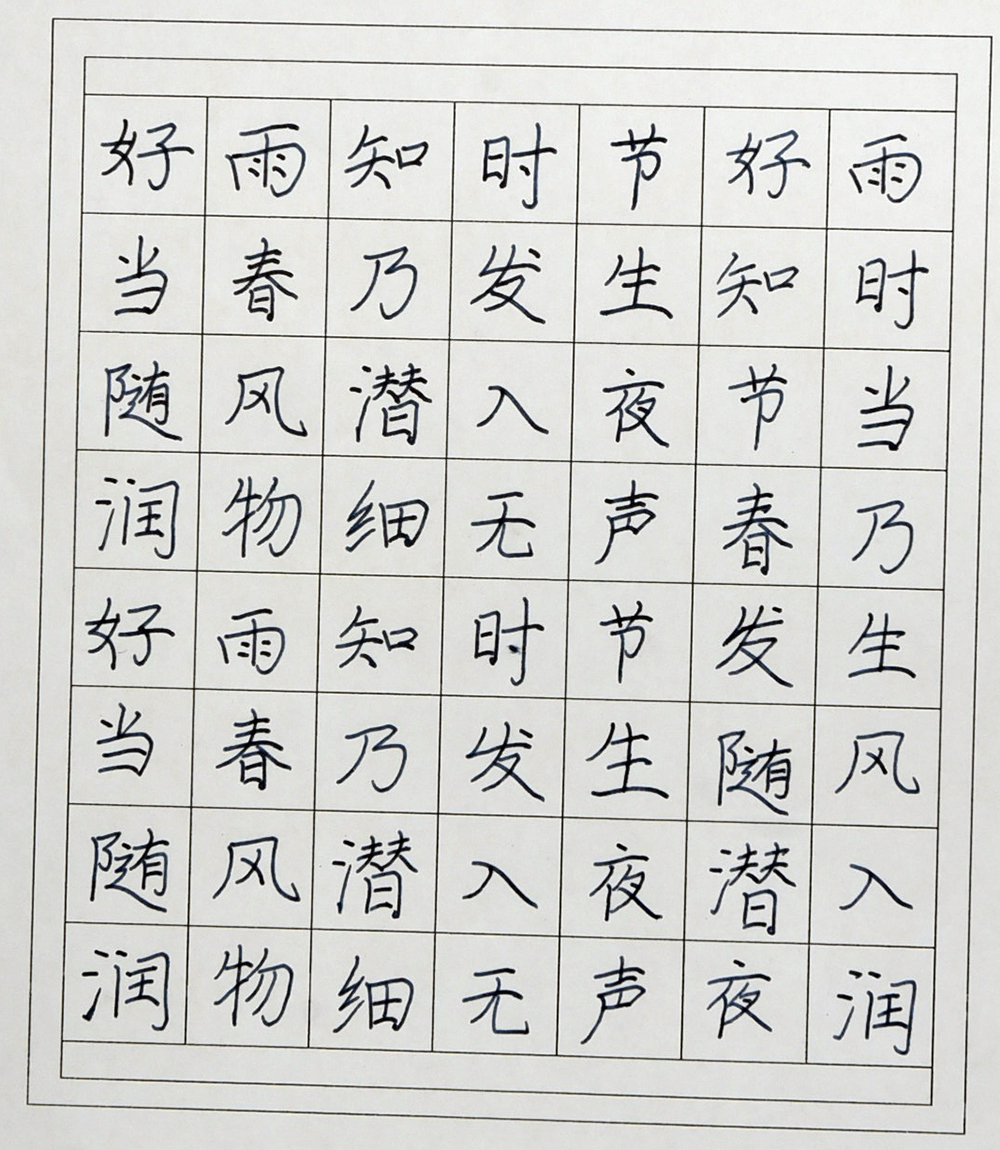 好雨知时节好雨
当春乃发生知时
随风潜入夜节当
润物细无声春乃
好雨知时节发生
当春乃发生随风
随风潜入夜潜入
润物细无声夜润